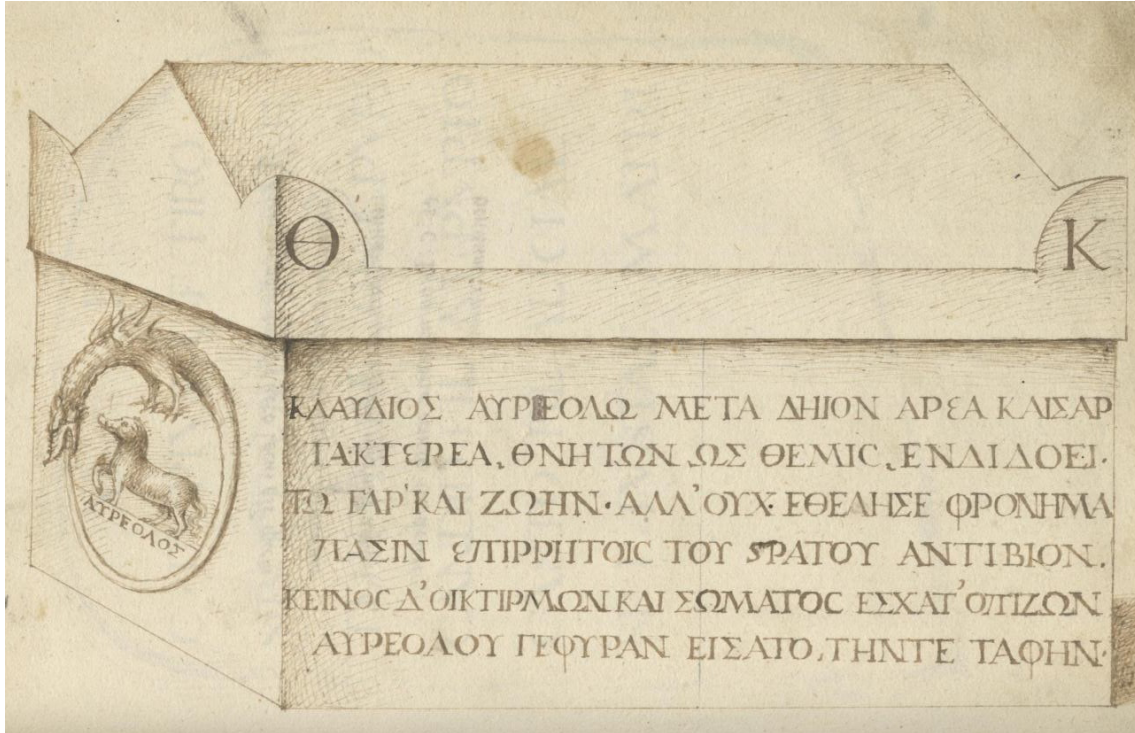 Θ Κ
ΚΛΑΥΔΙΟΣ ΑΥΡΕΟΛΩ ΜΕΤΑ ΔΗΙΟΝ ΑΡΕΑ ΚΑΙΣΑΡ
ΤΑΚΤΕΡΕΑ, ΘΝΗΤΩΝ ΩΣ ΘΕΜΙC, ΕΝΔΙΔΟΕΙ·
ΤΩ ΓΑΡ ΚΑΙ ΖΩΗΝ· ΑΛΛ' ΟΥΧ· ΕΘΕΛΗΣΕ ΦΡΟΝΗΜΑ
ΠΑΣΙΝ ΕΠΙΡΡΗΤΟΙC ΤΟΥ SΡΑΤΟΥ ΑΝΤΙΒΙΟΝ.
ΚΕΙΝΟC Δ' ΟΙΚΤΙΡΜΩΝ ΚΑΙ ΣΩΜΑΤΟC ΕΣΧΑΤ' ΟΠΙΖΩΝ
ΑΥΡΕΟΛΟΥ ΓΕΦΥΡΑΝ ΕΙΣΑΤΟ, ΤΗΝΤΕ ΤΑΦΗΝ·
ΑΥΡΕΟΛΟΣ